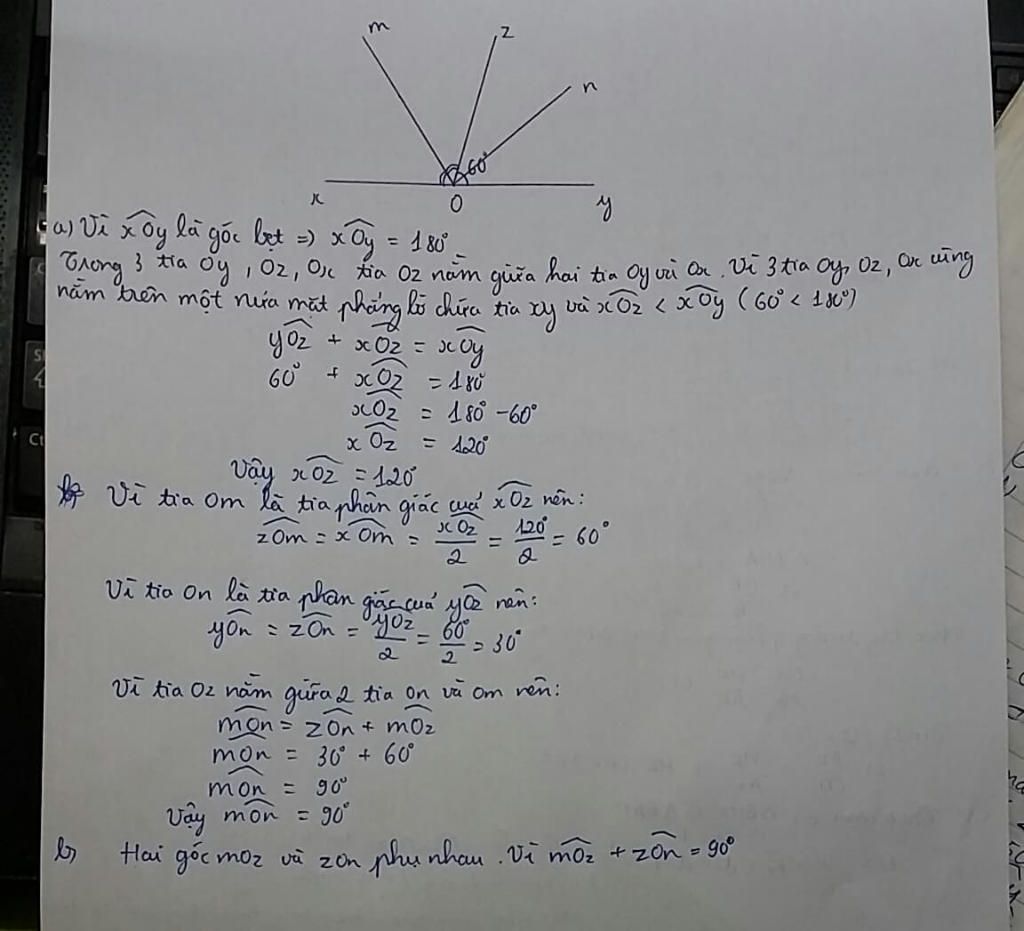 m
z
n
60°
x O y
a) Vì xOy là góc bẹt => xOy = 180°
Trong 3 tia Oy, Oz, Ox tia Oz nằm giữa hai tia Oy và Ox. Vì 3 tia Oy, Oz, Ox cùng
nằm trên một nửa mặt phẳng bờ chứa tia xy và xOz < xOy (60° < 180°)
yOz + xOz = xOy
60° + xOz = 180°
xOz = 180° - 60°
xOz = 120°
Vậy xOz = 120°
Vì tia Om là tia phân giác cuả xOz nên:
zOm = xOm = xOz/2 = 120°/2 = 60°
Vì tia On là tia phân giác cuả yOz nên:
yOn = zOn = yOz/2 = 60°/2 = 30°
Vì tia Oz nằm giữa 2 tia On và Om nên:
mOn = zOn + mOz
mOn = 30° + 60°
mOn = 90°
Vậy mOn = 90°
b) Hai góc mOz và zOn phụ nhau. Vì mOz + zOn = 90°